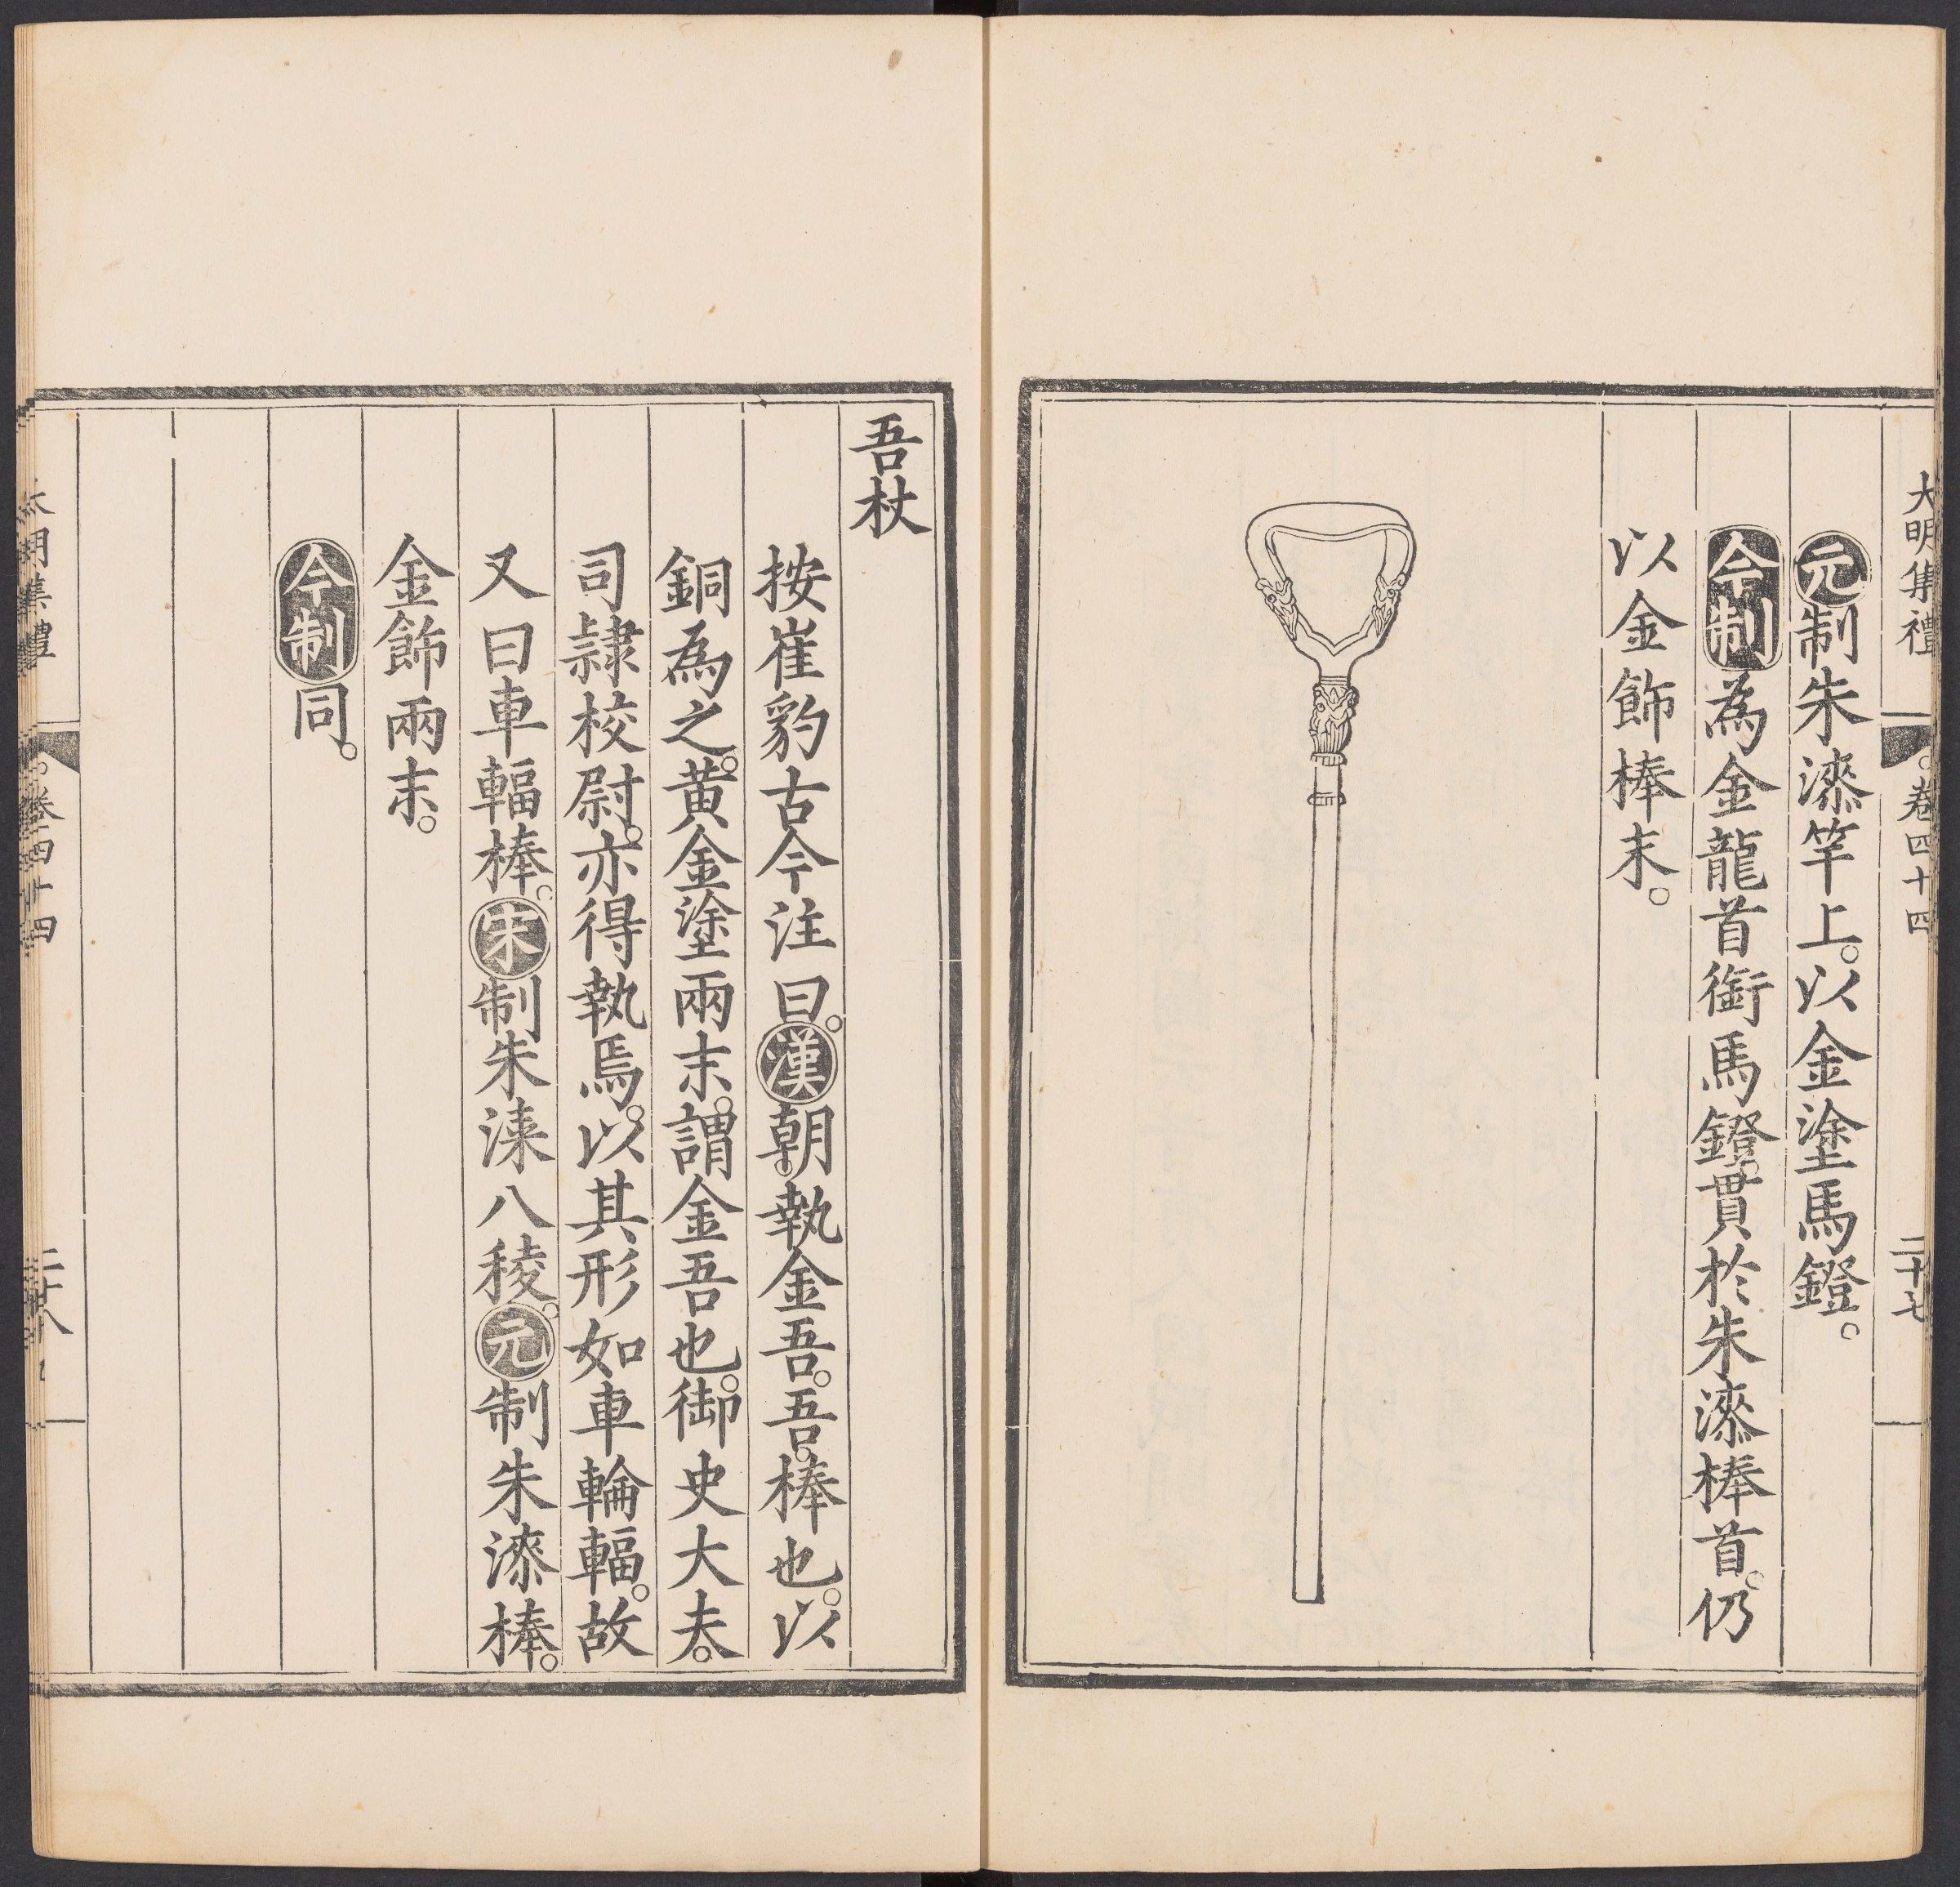 大明集禮 卷四十四 二十七
元制朱漆竿上。以金塗馬鐙。
今制為金龍首銜馬鐙。貫於朱漆棒首。仍
以金飾棒末。
吾杖
按崔豹古今注曰。漢朝。執金吾。吾。棒也。以
銅為之。黃金塗兩末。謂金吾也。御史大夫。
司隷校尉。亦得執焉。以其形如車輪輻。故
又曰車輻棒。宋制朱漆八稜。元制朱漆棒。
金飾兩末。
今制同。
大明集禮 卷四十四 二十八